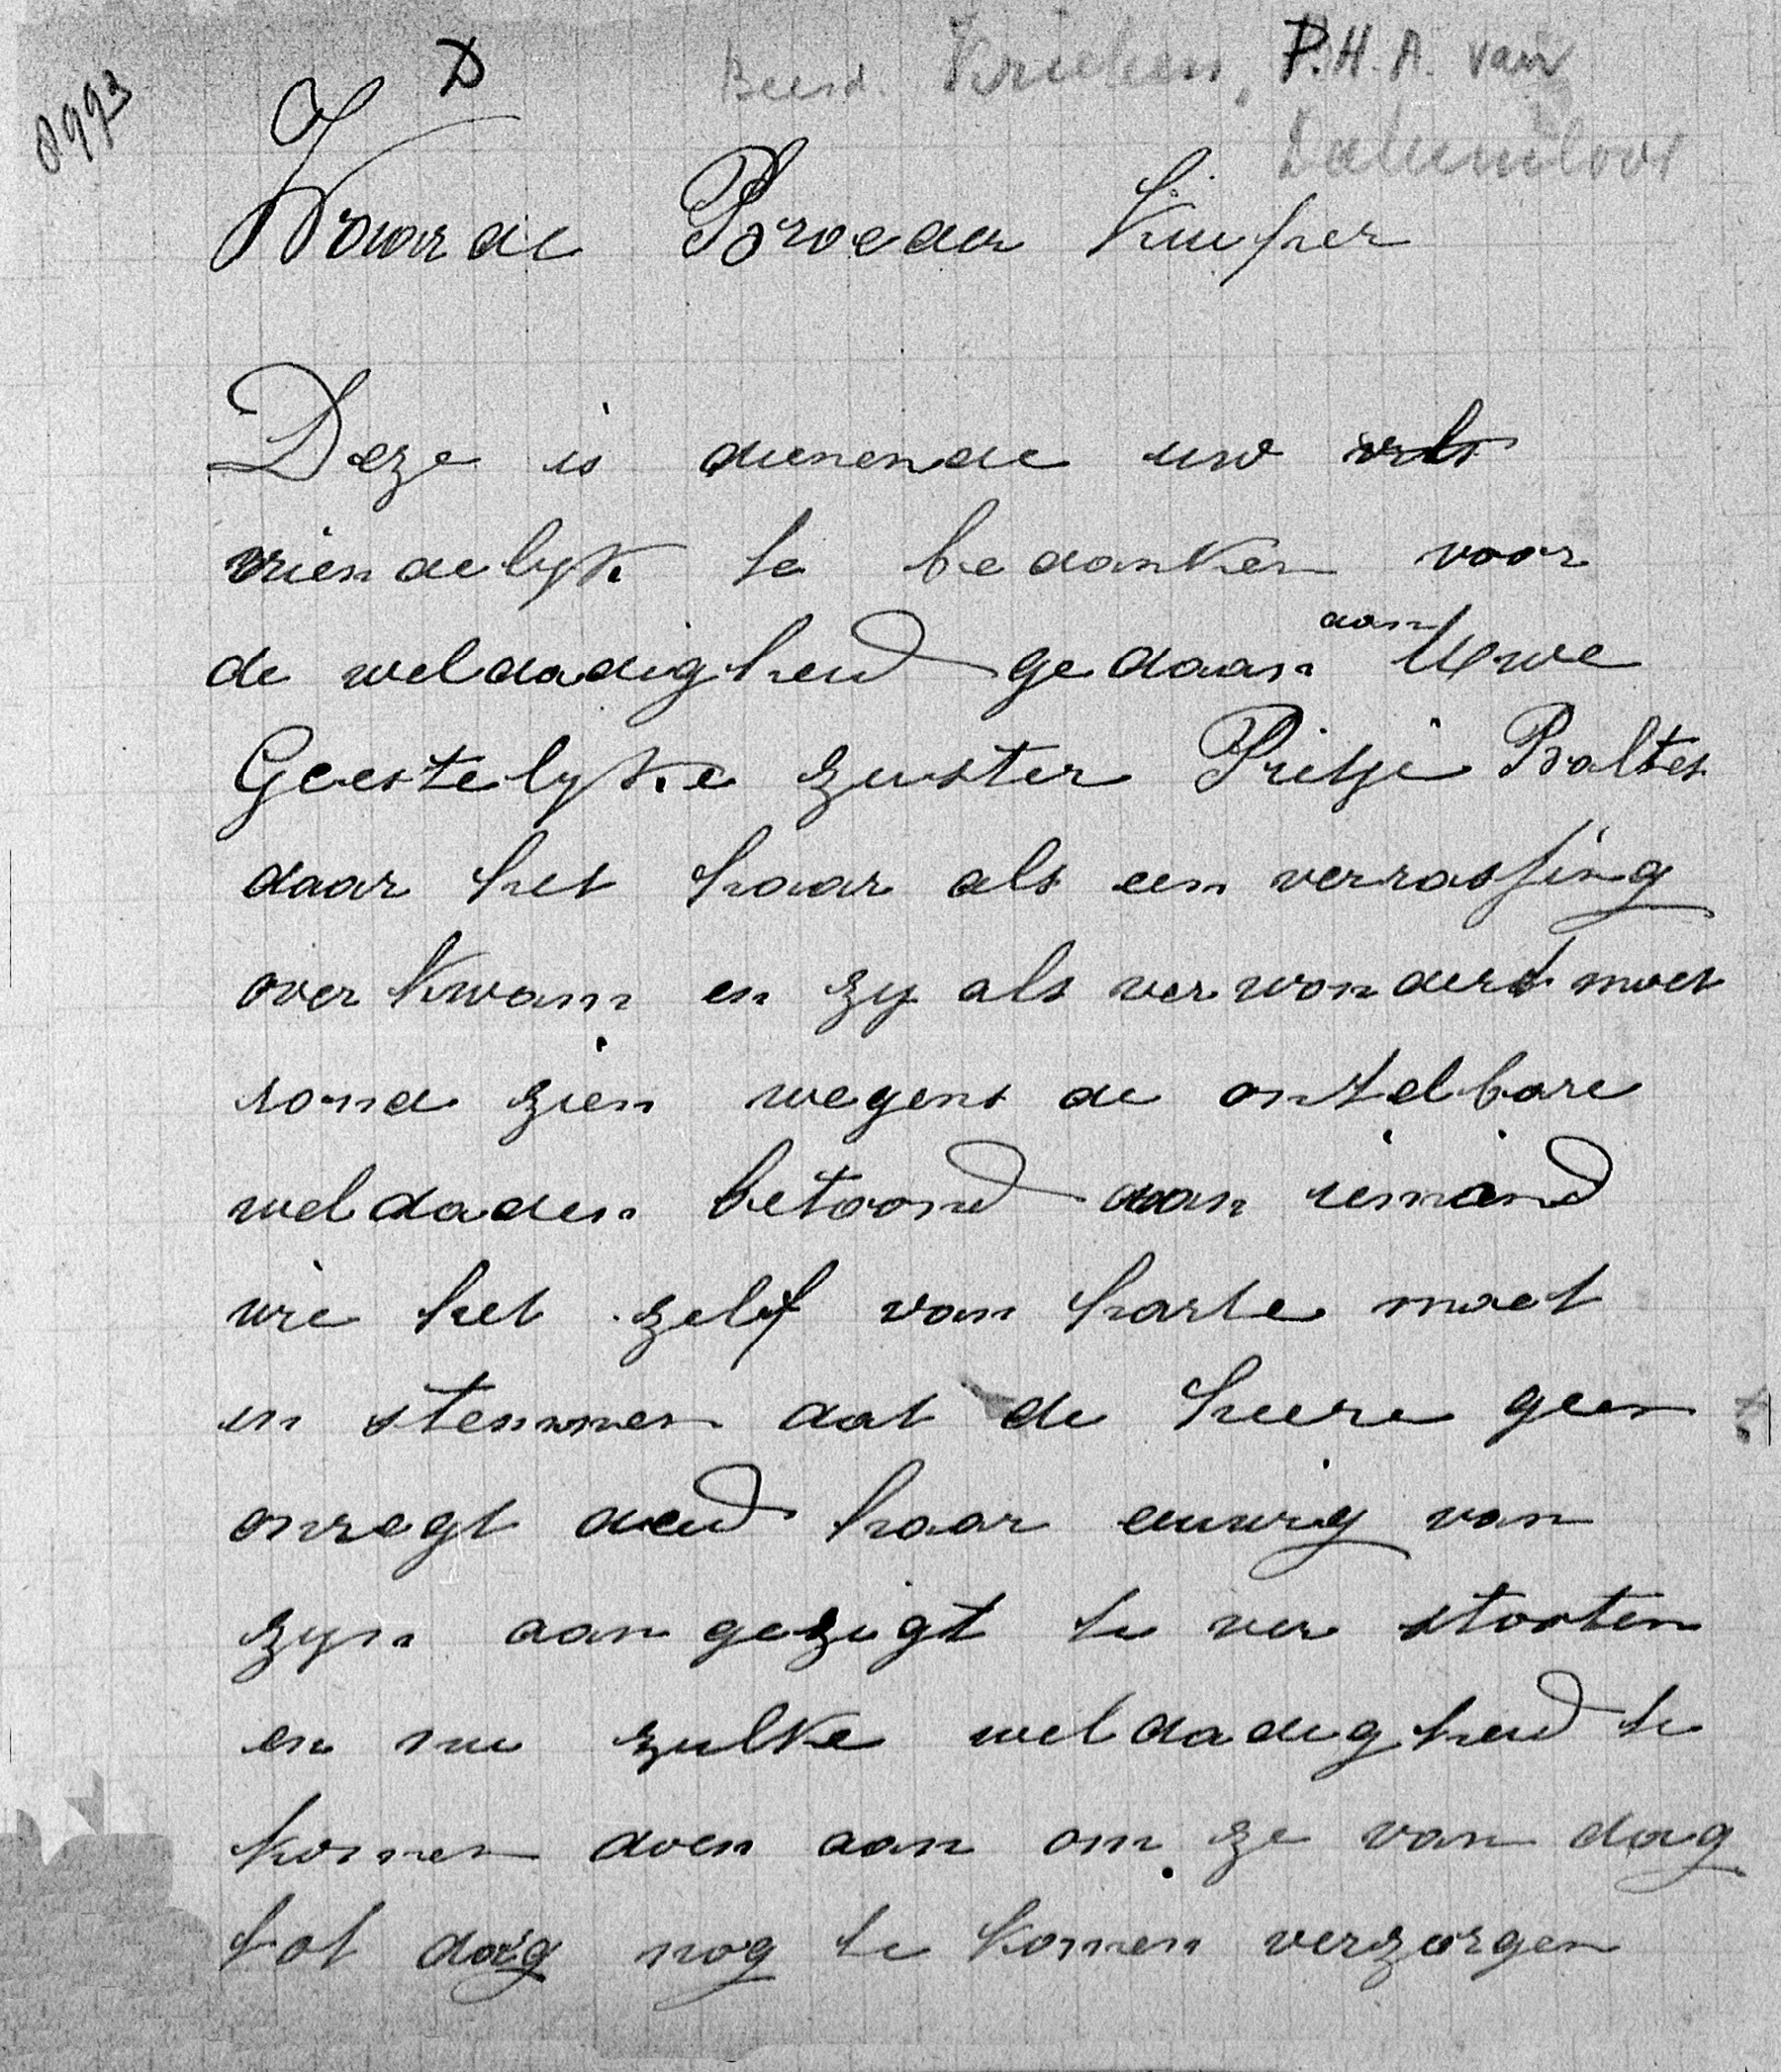 0993
D
P.H.A. van
Waarde Broeder Kuiper
Deze is dienende uw
vriendelyk te bedanken voor
de weldadigheid gedaan aan Uwe
Geestelyke zuster Pietje Baltes
daar het haar als een verrassing
over kwam en zy als verwondert moet
rond zien wegens de ontelbare
weldaden betoond aan iemand
wie het zelf van harte moet
in stemmen dat de heere geen
onregt deed haar eeuwig van
zyn aangezigt te ver stooten
en nu zulke weldadigheid te
komen doen aan om ze van dag
tot dag nog te komen verzorgen